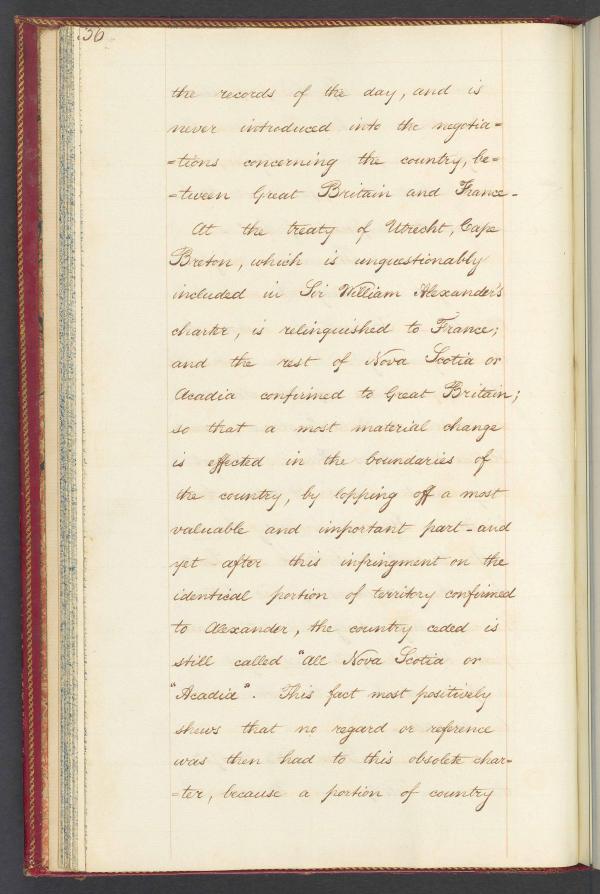 36
the records of the day, and is
never introduced into the negotia=
=tions concerning the country, be=
=tween Great Britain and France-
At the treaty of Utrecht, Cape
Breton, which is unquestionably
included in Sir William Alexander's
charter, is relinquished to France;
and the rest of Nova Scotia or
Acadia confirmed to Great Britain;
so that a most material change
is effected in the boundaries of
the country, by lopping off a most
valuable and important part - and
yet after this infringment on the
identical portion of territory confirmed
to Alexander, the country ceded is
still called "All Nova Scotia or
"Acadia". This fact most positively
shews that no regard or reference
was then had to this obsolete char=
=ter, because a portion of country